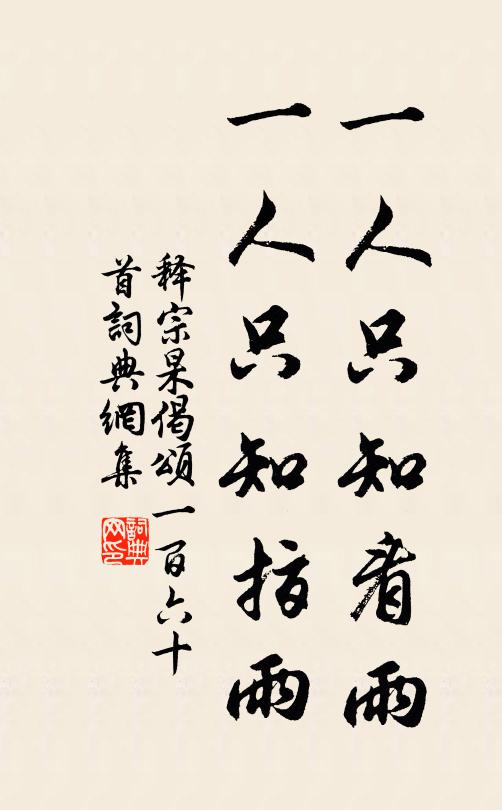 一人只知看雨
一人只知指雨
释宗杲偈頌一百六十
首詞典網集
詞典网印